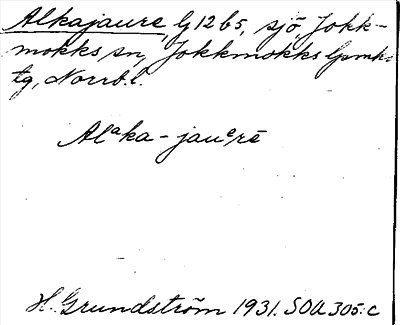 Alkajaure, G12b5, sjö, Jokk-
mokks sn, Jokkmokks lpmks
tg, Norrb. l.
Alᵃka-jauᵉrē
H. Grundström 1931. SOU 305:c